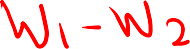 W1 - W2